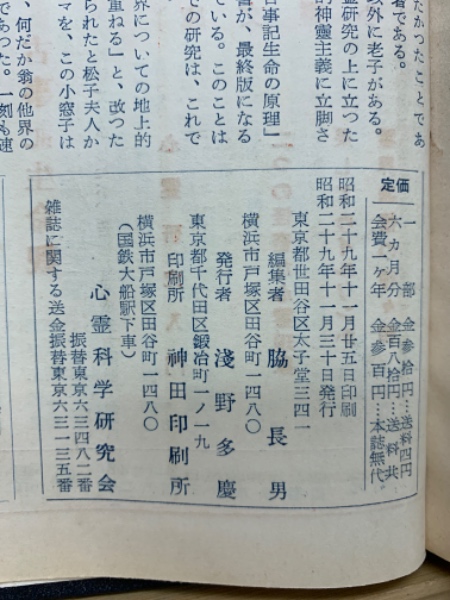 たかつたことであ
者である。
以外に老子がある。
霊研究の上に立つた
的神靈主義に立脚さ
古事記生命の原理」
書が、最終版になる
ている。このことは
での研究は、これで
界についての地上的
重ねる」と、改つた
られたと松子夫人か
マを、この小窓子は
、何だか翁の他界の
であつた。一刻も速
定価
一部 金参拾円…送料四円
六ヵ月分 金百八拾円…送料共
会費一ヶ年 金参百円…本誌無代
昭和二十九年十一月廿五日印刷
昭和二十九年十一月三十日発行
東京都世田谷区太子堂三四一
編集者 脇長男
横浜市戸塚区田谷町一四八〇
発行者 淺野多慶
東京都千代田区鍛冶町一ノ一九
印刷所 神田印刷所
横浜市戸塚区田谷町一四八〇
(国鉄大船駅下車)
心霊科学研究会
振替東京六三四八二番
雑誌に関する送金振替東京六三一三五番